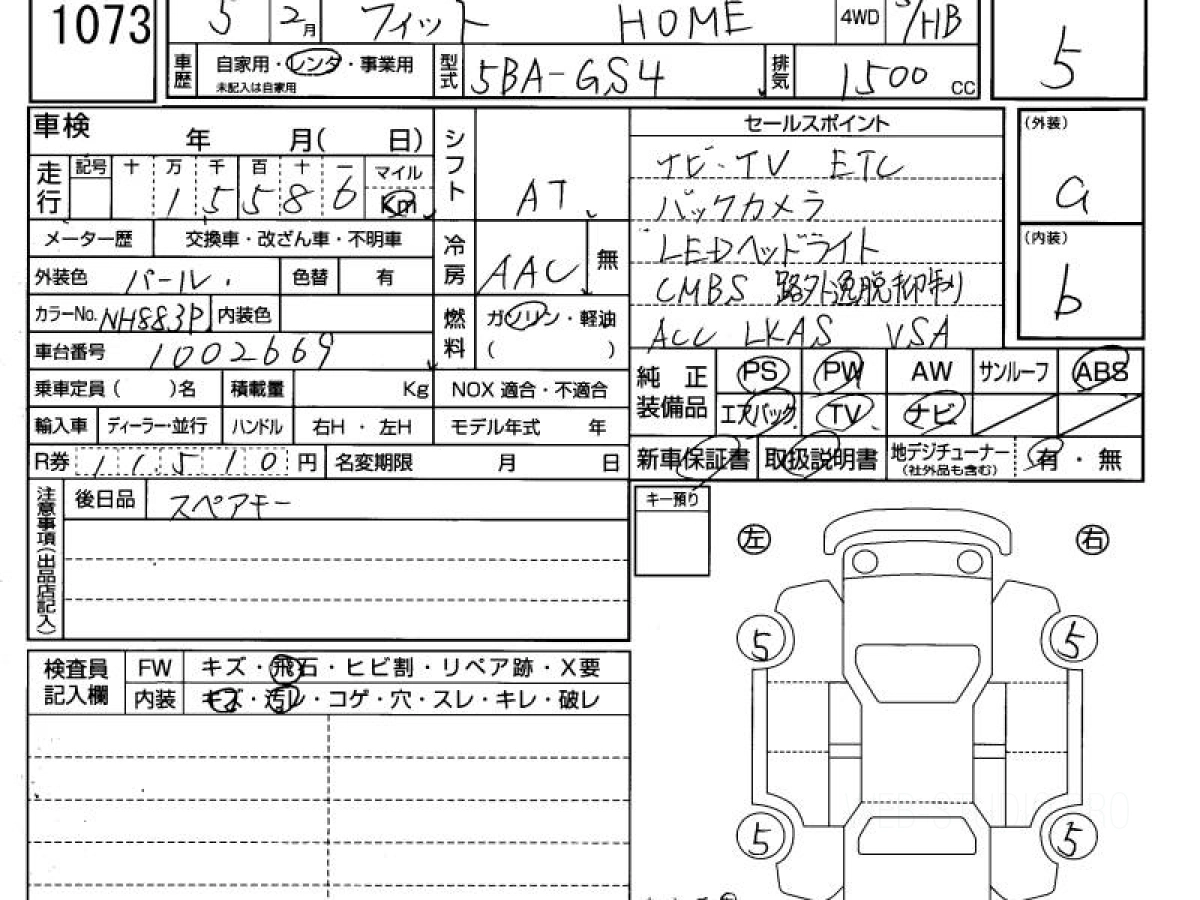 1073 5 2月 フィット HOME 4WD 5/HB 5
車歴 自家用・レンタ・事業用 型式 5BA-GS4 排気 1500 CC
未記入は自家用
車検 年 月( 日) シフト AT セールスポイント (外装) a
走行 記号 十 万 千 百 十 一 マイル ナビ・TV ETC
1 5 5 8 6 Km バックカメラ
メーター歴 交換車・改ざん車・不明車 冷房 AAC 無 LEDヘッドライト (内装) b
外装色 パール. 色替 有 CMBS 路外逸脱抑制
カラーNo. NH883P 内装色 燃料 ガソリン・軽油 ACC LKAS VSA
車台番号 1002669 ( )
乗車定員( )名 積載量 Kg NOX 適合・不適合 純正装備品 PS PW AW サンルーフ ABS
輸入車 ディーラー・並行 ハンドル 右H・左H モデル年式 年 エアバック TV ナビ
R券 11,510 円 名変期限 月 日 新車保証書 取扱説明書 地デジチューナー (社外品も含む) 有・無
注意事項(出品店記入) 後日品 スペアキー キー預り
左 右
5 5
検査員記入欄 FW キズ・飛石・ヒビ割・リペア跡・X要
内装 キズ・汚レ・コゲ・穴・スレ・キレ・破レ
5 5